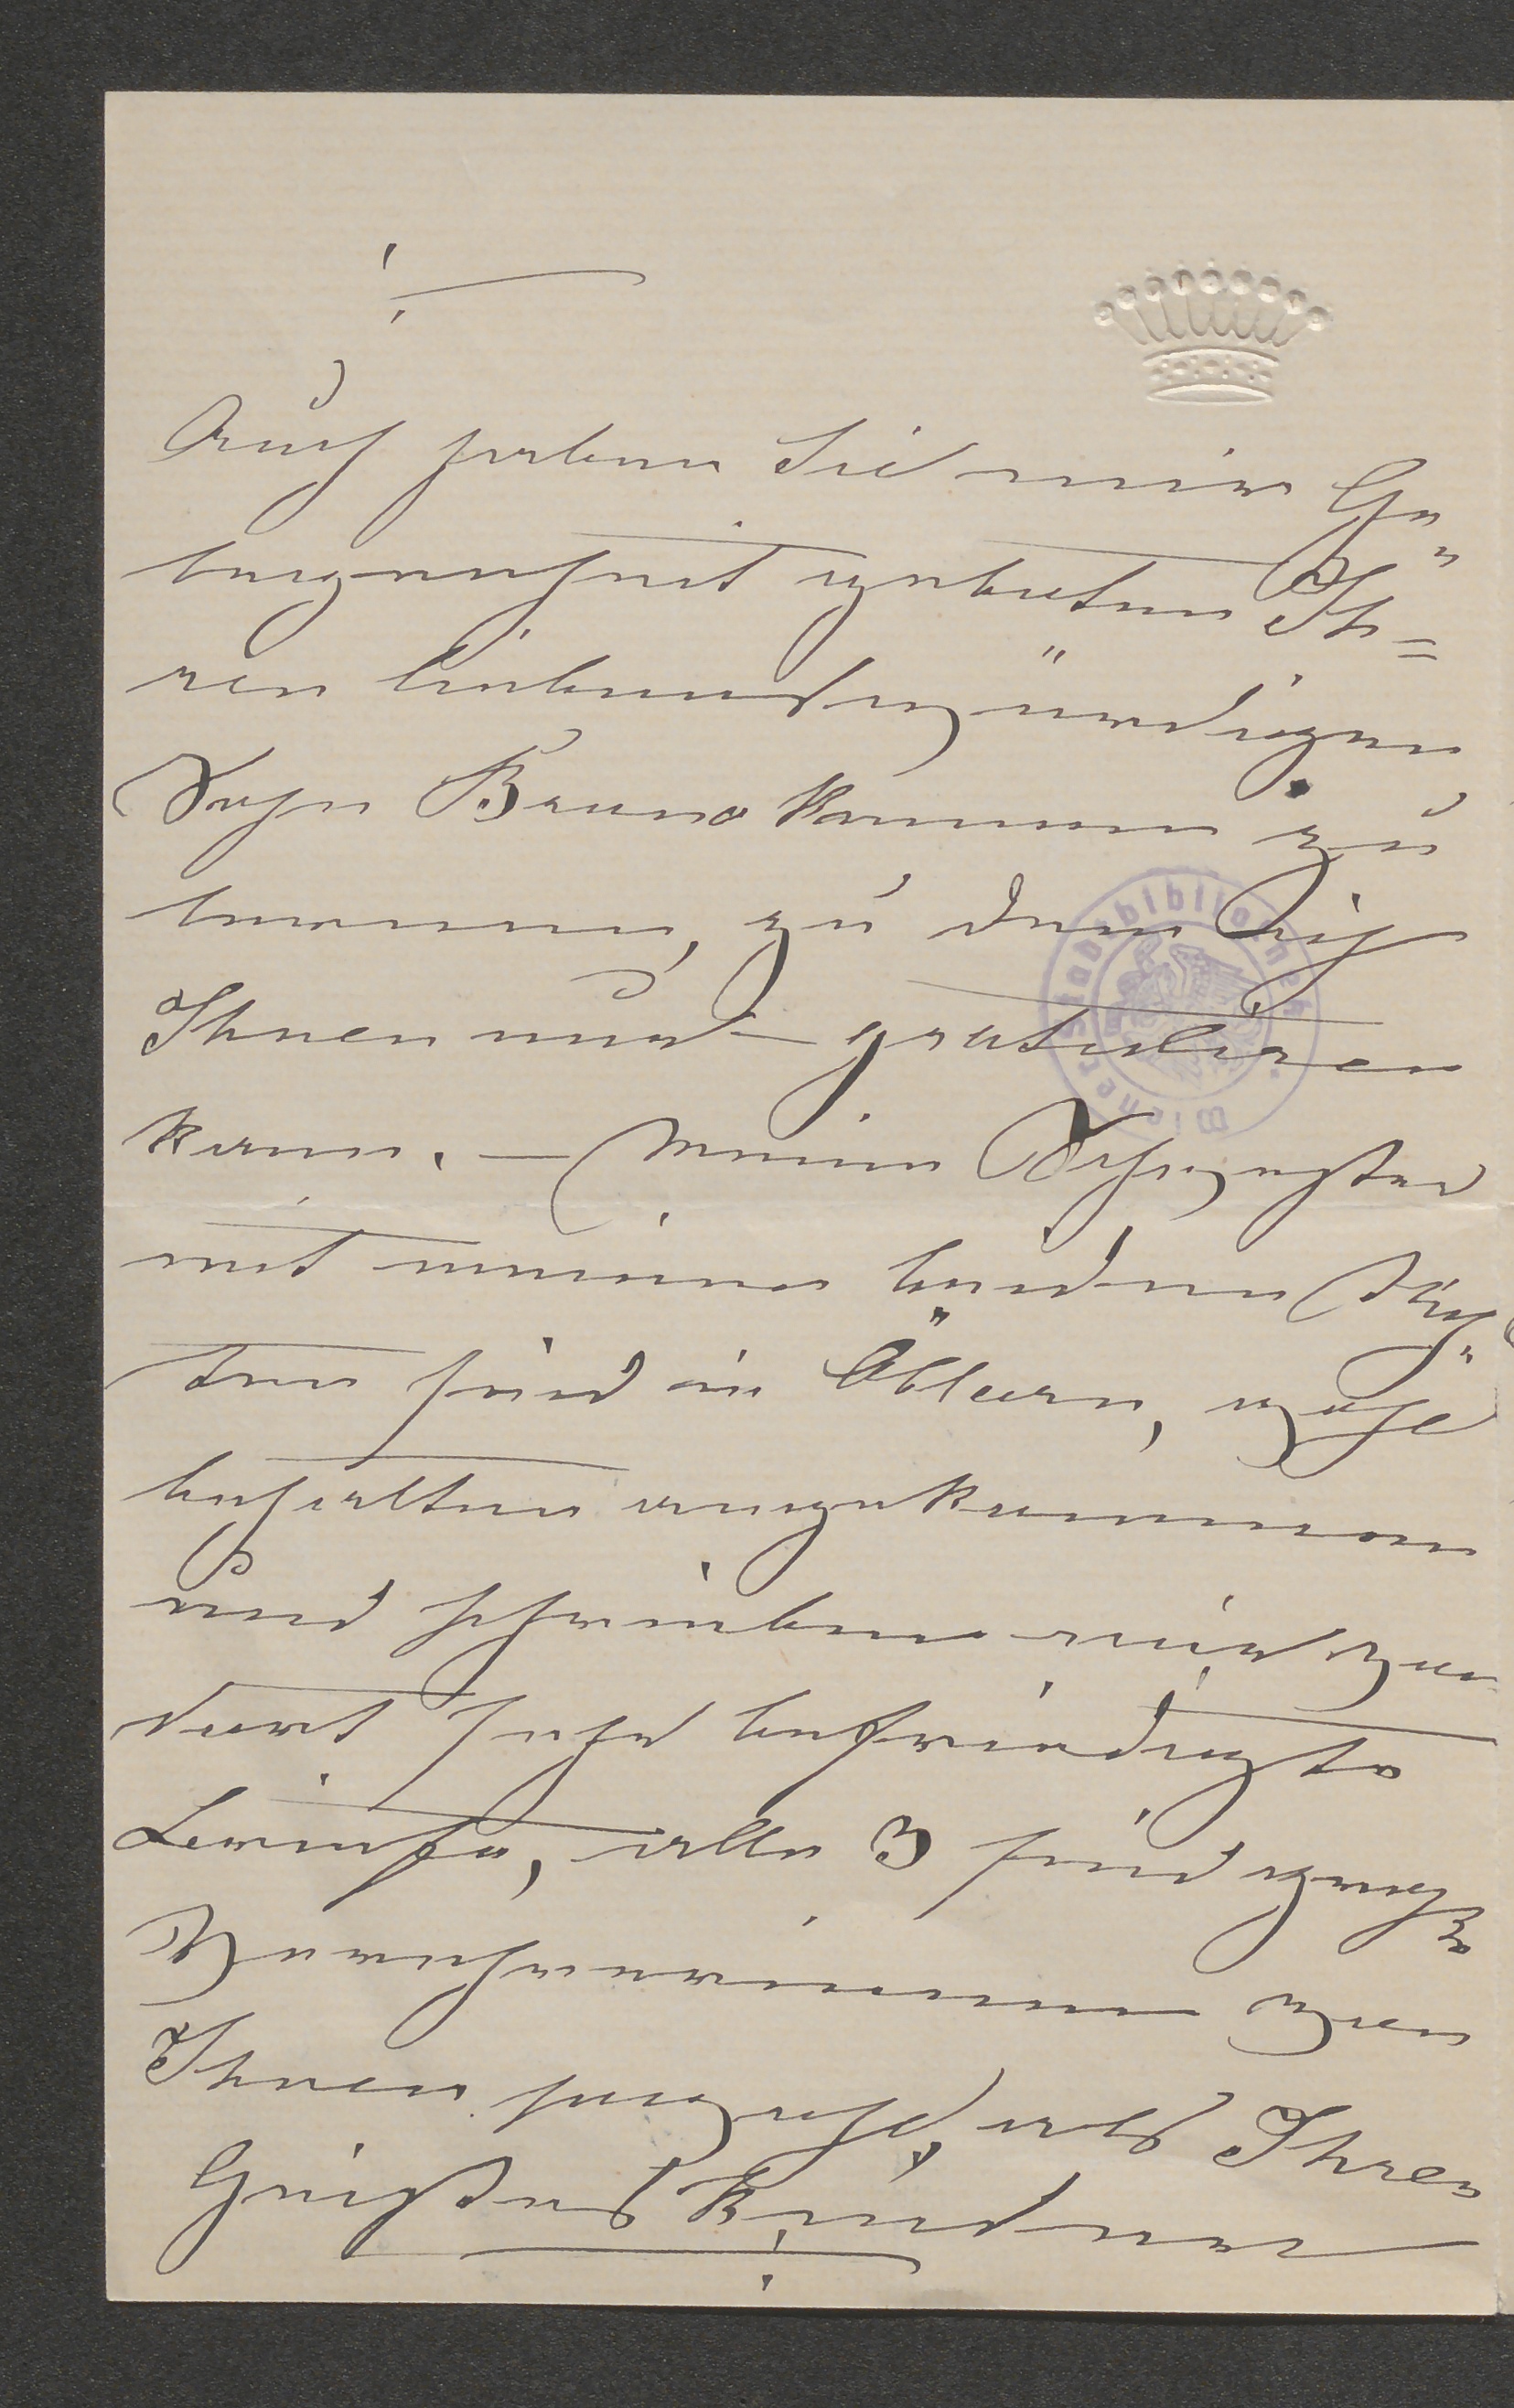 Auch haben Sie mir Ge„
legenheit geboten Ih=
ren liebenswürdigen
Sohn Bruno kennen zu
lernen, zu dem ich
Ihnen nur gratuliren
kann. – Meine Schwester
mit meinen beiden Töch„
ter sind in Öblarn, wohl
behalten angekommen
und schreiben mir von
dort sehr befriedigte
Briefe, alle 3 sind große
Verehrerinnen von
Ihnen sowohl, als Ihren
Geisteskindern
Wiener Stadtbibliothek